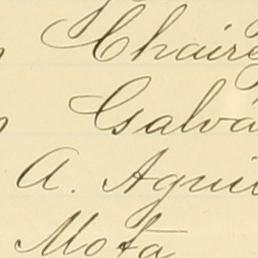 Chaire
Galvá
A. Agui
Mota